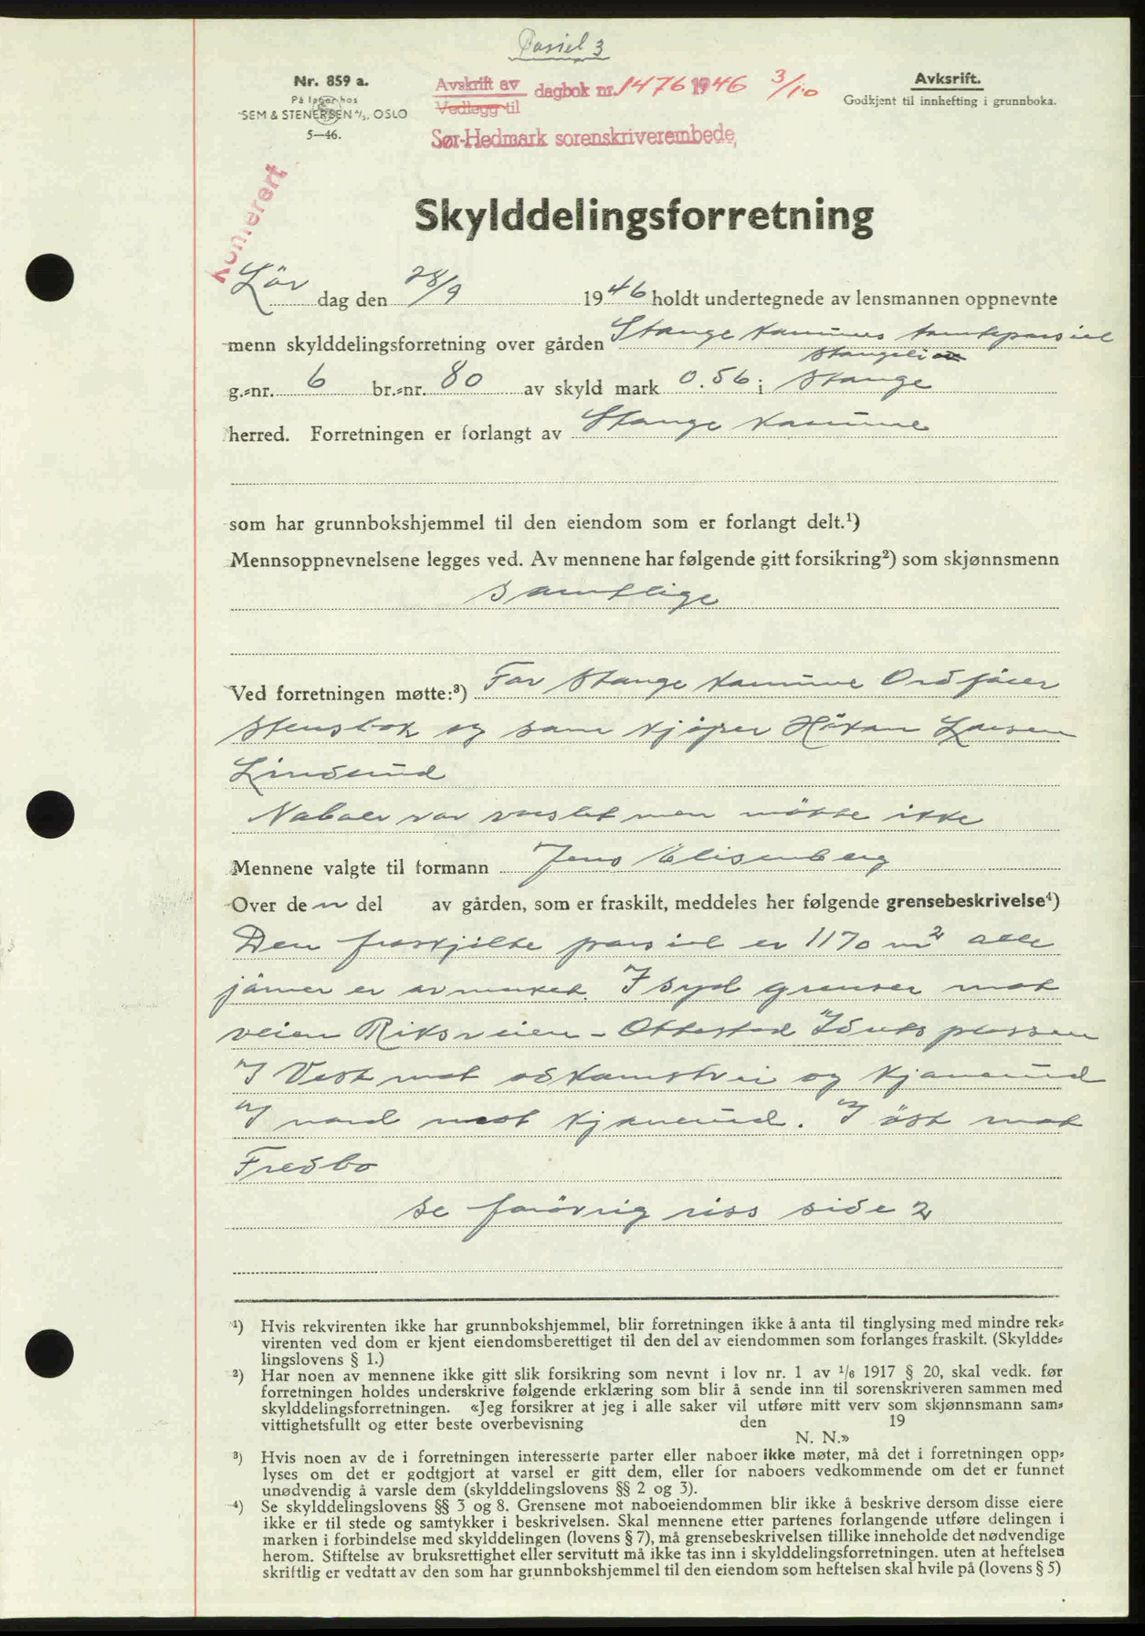 Parsel 3
Nr. 859 a.
På lager hos
SEM & STENERSEN A/S, OSLO
5—46.
Avskrift av
Vedlegg til
dagbok nr. 1476 1946 3/10
Sør-Hedmark sorenskriverembede,
Avksrift.
Godkjent til innhefting i grunnboka.
Konferert
Skylddelingsforretning
Lör dag den 28/9 1946 holdt undertegnede av lensmannen oppnevnte
menn skylddelingsforretning over gården Stange Kommunes tomteparsiel
Stangeli
g.-nr. 6 br.-nr. 80 av skyld mark 0.56 i Stange
herred. Forretningen er forlangt av Stange Kommune
som har grunnbokshjemmel til den eiendom som er forlangt delt.¹)
Mennsoppnevnelsene legges ved. Av mennene har følgende gitt forsikring²) som skjønnsmenn
samtlige
Ved forretningen møtte:³) For Stange Kommune Ordförer
Stensbok og som kjöper Håkan Larsen
Lindsund
Naboer var varslet men mötte ikke
Mennene valgte til formann Jens Elisenberg
Over de n del av gården, som er fraskilt, meddeles her følgende grensebeskrivelse⁴)
Den fraskjilte parsiel er 1170 m² alle
jörner er avmerket. I syd grenser mot
veien Riksveien - Ottestad Idrettsplassen
I Vest mot adkomstvei og Kjonerud
I nord mot Kjonerud. I öst mot
Fredbo
Se forövrig riss side 2
¹) Hvis rekvirenten ikke har grunnbokshjemmel, blir forretningen ikke å anta til tinglysing med mindre rek-
virenten ved dom er kjent eiendomsberettiget til den del av eiendommen som forlanges fraskilt. (Skyldde-
lingslovens § 1.)
²) Har noen av mennene ikke gitt slik forsikring som nevnt i lov nr. 1 av 1/6 1917 § 20, skal vedk. før
forretningen holdes underskrive følgende erklæring som blir å sende inn til sorenskriveren sammen med
skylddelingsforretningen. «Jeg forsikrer at jeg i alle saker vil utføre mitt verv som skjønnsmann sam-
vittighetsfullt og etter beste overbevisning den 19
N. N.»
³) Hvis noen av de i forretningen interesserte parter eller naboer ikke møter, må det i forretningen opp-
lyses om det er godtgjort at varsel er gitt dem, eller for naboers vedkommende om det er funnet
unødvendig å varsle dem (skylddelingslovens §§ 2 og 3).
⁴) Se skylddelingslovens §§ 3 og 8. Grensene mot naboeiendommen blir ikke å beskrive dersom disse eiere
ikke er til stede og samtykker i beskrivelsen. Skal mennene etter partenes forlangende utføre delingen i
marken i forbindelse med skylddelingen (lovens § 7), må grensebeskrivelsen tillike inneholde det nødvendige
herom. Stiftelse av bruksrettighet eller servitutt må ikke tas inn i skylddelingsforretningen. uten at heftelsen
skriftlig er vedtatt av den som har grunnbokshjemmel til den eiendom som heftelsen skal hvile på (lovens § 5)